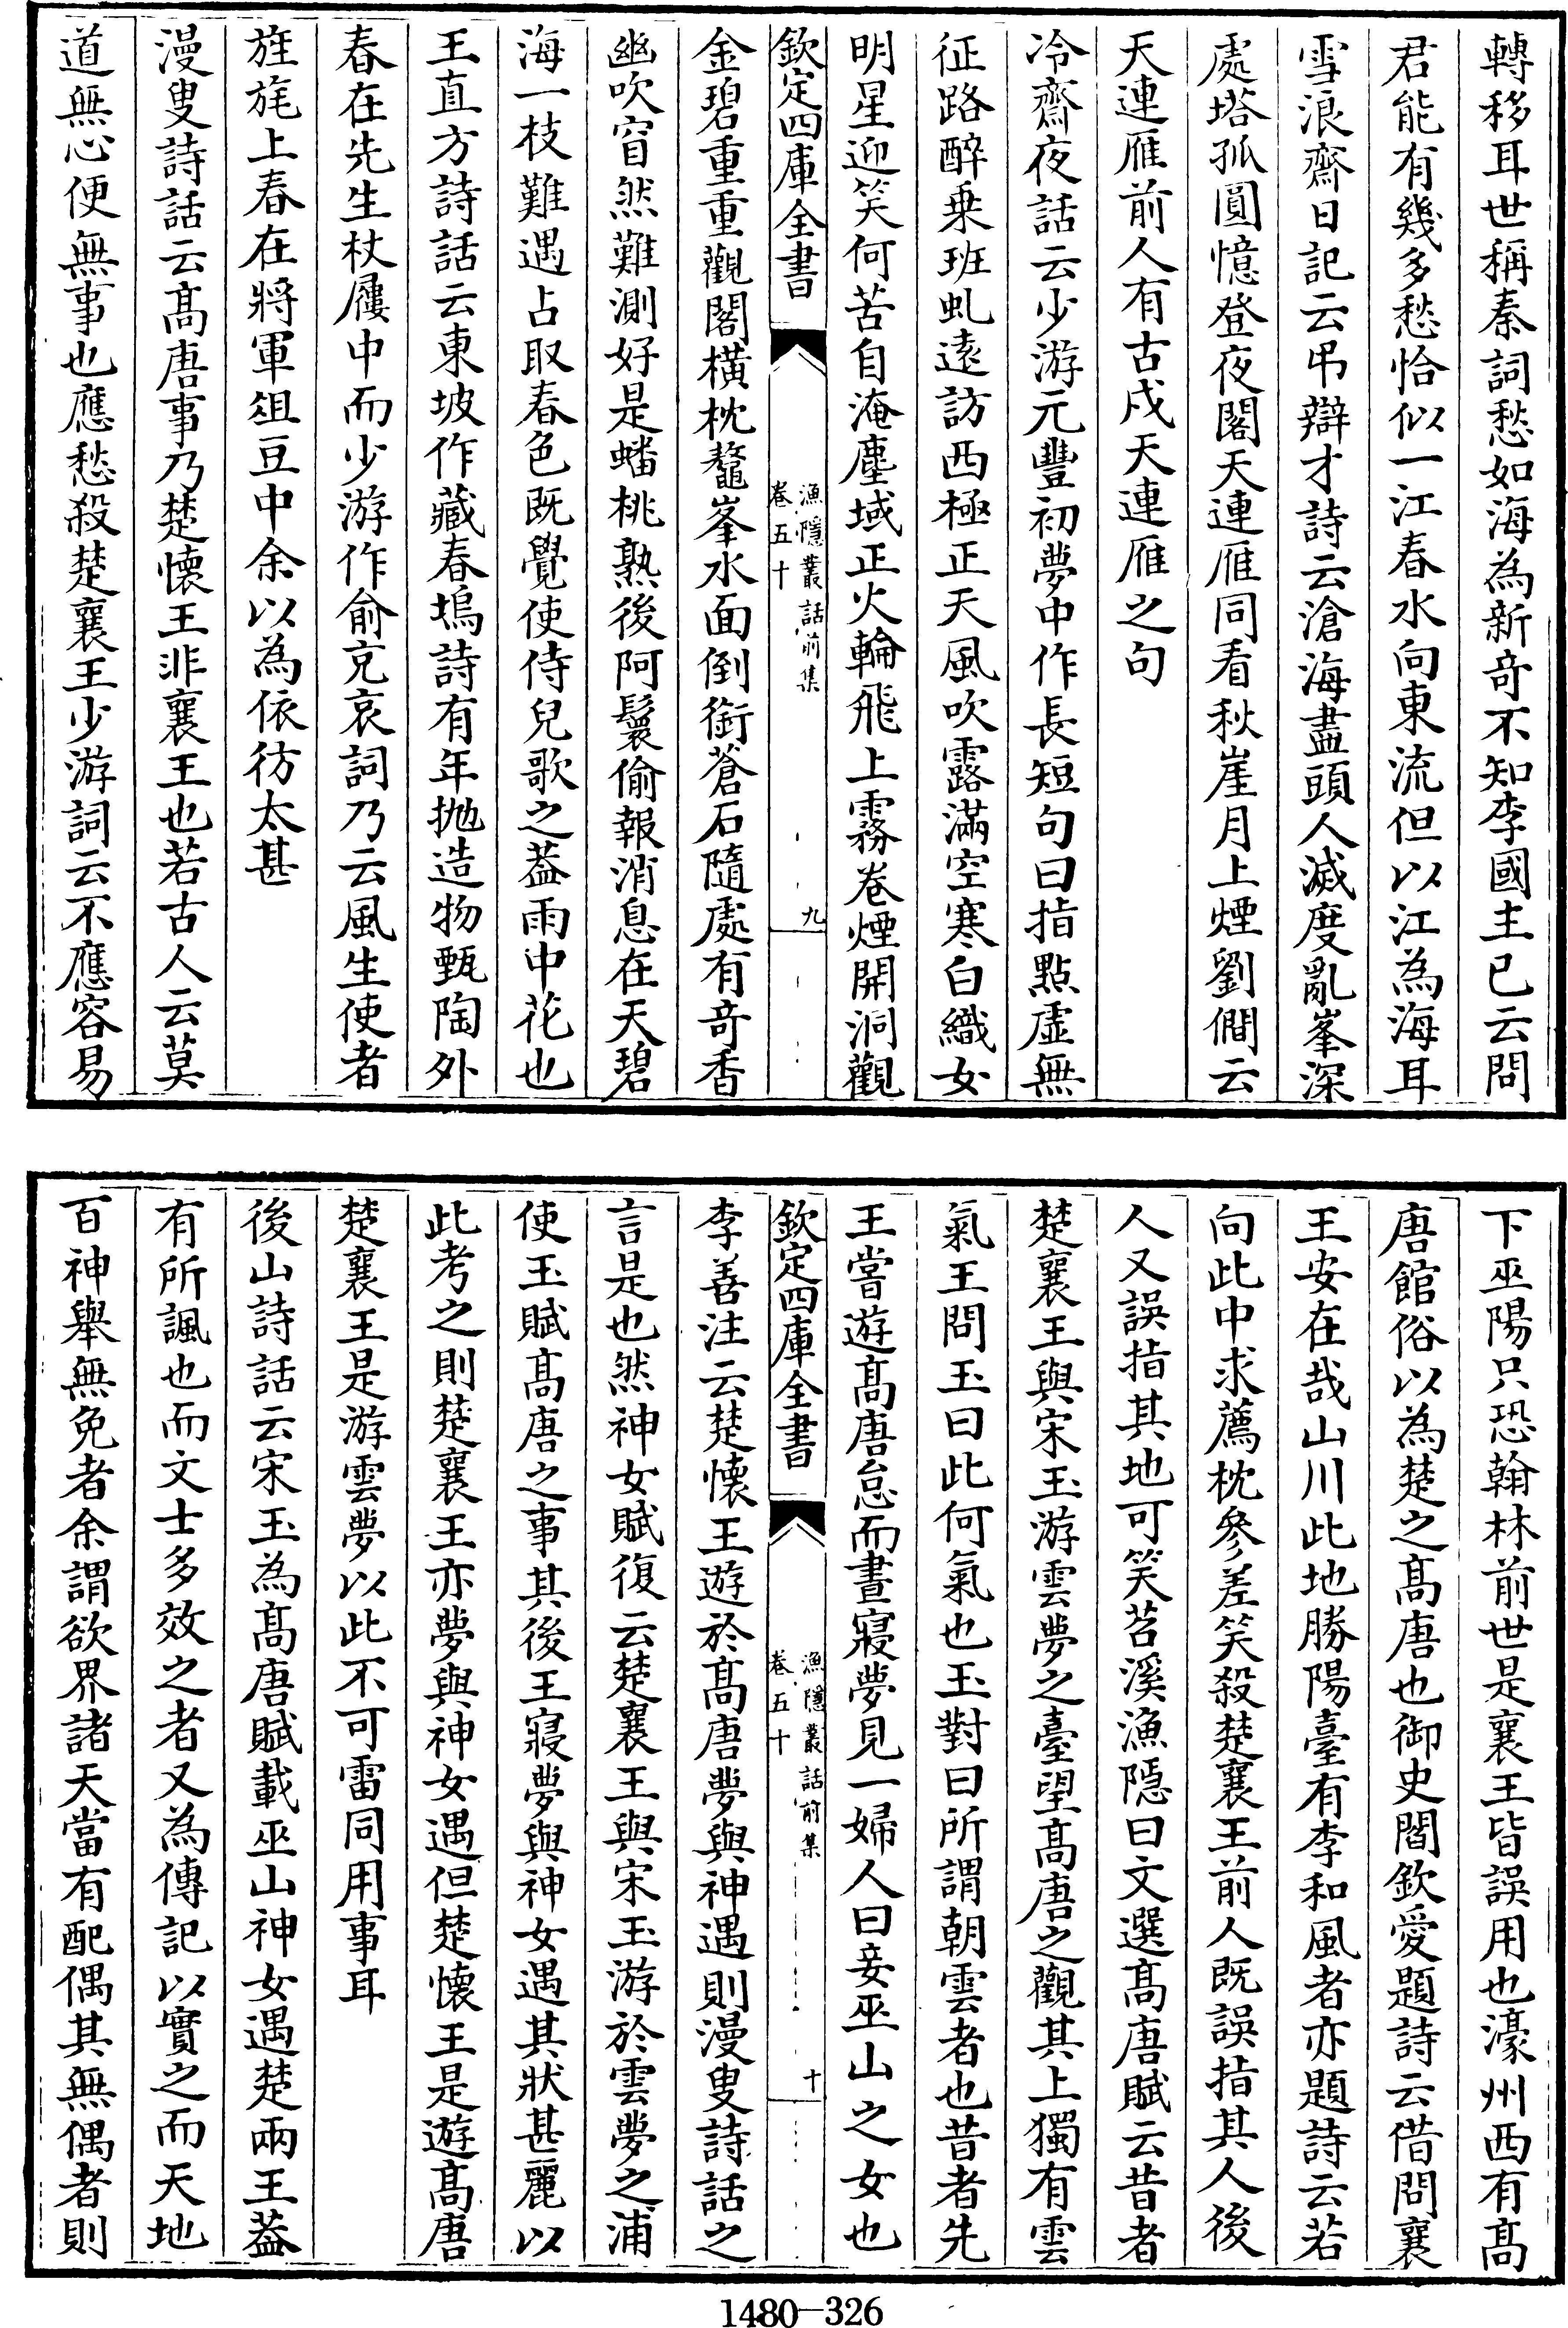 轉移耳世稱秦詞愁如海為新竒不知李國主已云問
君能有幾多愁恰似一江春水向東流但以江為海耳
雪浪齋日記云弔辯才詩云滄海盡頭人滅度亂峯深
處塔孤圓憶登夜閣天連雁同看秋崖月上煙劉僩云
天連雁前人有古戍天連雁之句
冷齋夜話云少游元豐初夢中作長短句曰指點虛無
征路醉乗班虬逺訪西極正天風吹露滿空寒白織女
明星迎笑何苦自淹塵域正火輪飛上霧卷煙開洞觀
欽定四庫全書
漁隱叢話前集
卷五十
九
金碧重重觀閣橫枕鼇峯水面倒銜蒼石隨處有竒香
幽吹窅然難測好是蟠桃熟後阿鬟偷報消息在天碧
海一枝難遇占取春色既覺使侍兒歌之葢雨中花也
王直方詩話云東坡作藏春塢詩有年抛造物甄陶外
春在先生杖屨中而少游作俞充哀詞乃云風生使者
旌旄上春在將軍俎豆中余以為依彷太甚
漫叟詩話云髙唐事乃楚懷王非襄王也若古人云莫
道無心便無事也應愁殺楚襄王少游詞云不應容易
下巫陽只恐翰林前世是襄王皆誤用也濠州西有髙
唐館俗以為楚之髙唐也御史閻欽愛題詩云借問襄
王安在哉山川此地勝陽臺有李和風者亦題詩云若
向此中求薦枕參差笑殺楚襄王前人既誤指其人後
人又誤指其地可笑苕溪漁隠曰文選髙唐賦云昔者
楚襄王與宋玉游雲夢之臺望髙唐之觀其上獨有雲
氣王問玉曰此何氣也玉對曰所謂朝雲者也昔者先
王嘗遊髙唐怠而晝寢夢見一婦人曰妾巫山之女也
欽定四庫全書
漁隱叢話前集
卷五十
十
李善注云楚懷王遊於髙唐夢與神遇則漫叟詩話之
言是也然神女賦復云楚襄王與宋玉游於雲夢之浦
使玉賦髙唐之事其後王寢夢與神女遇其狀甚麗以
此考之則楚襄王亦夢與神女遇但楚懷王是遊髙唐
楚襄王是游雲夢以此不可雷同用事耳
後山詩話云宋玉為髙唐賦載巫山神女遇楚兩王葢
有所諷也而文士多效之者又為傳記以實之而天地
百神舉無免者余謂欲界諸天當有配偶其無偶者則
1480-326